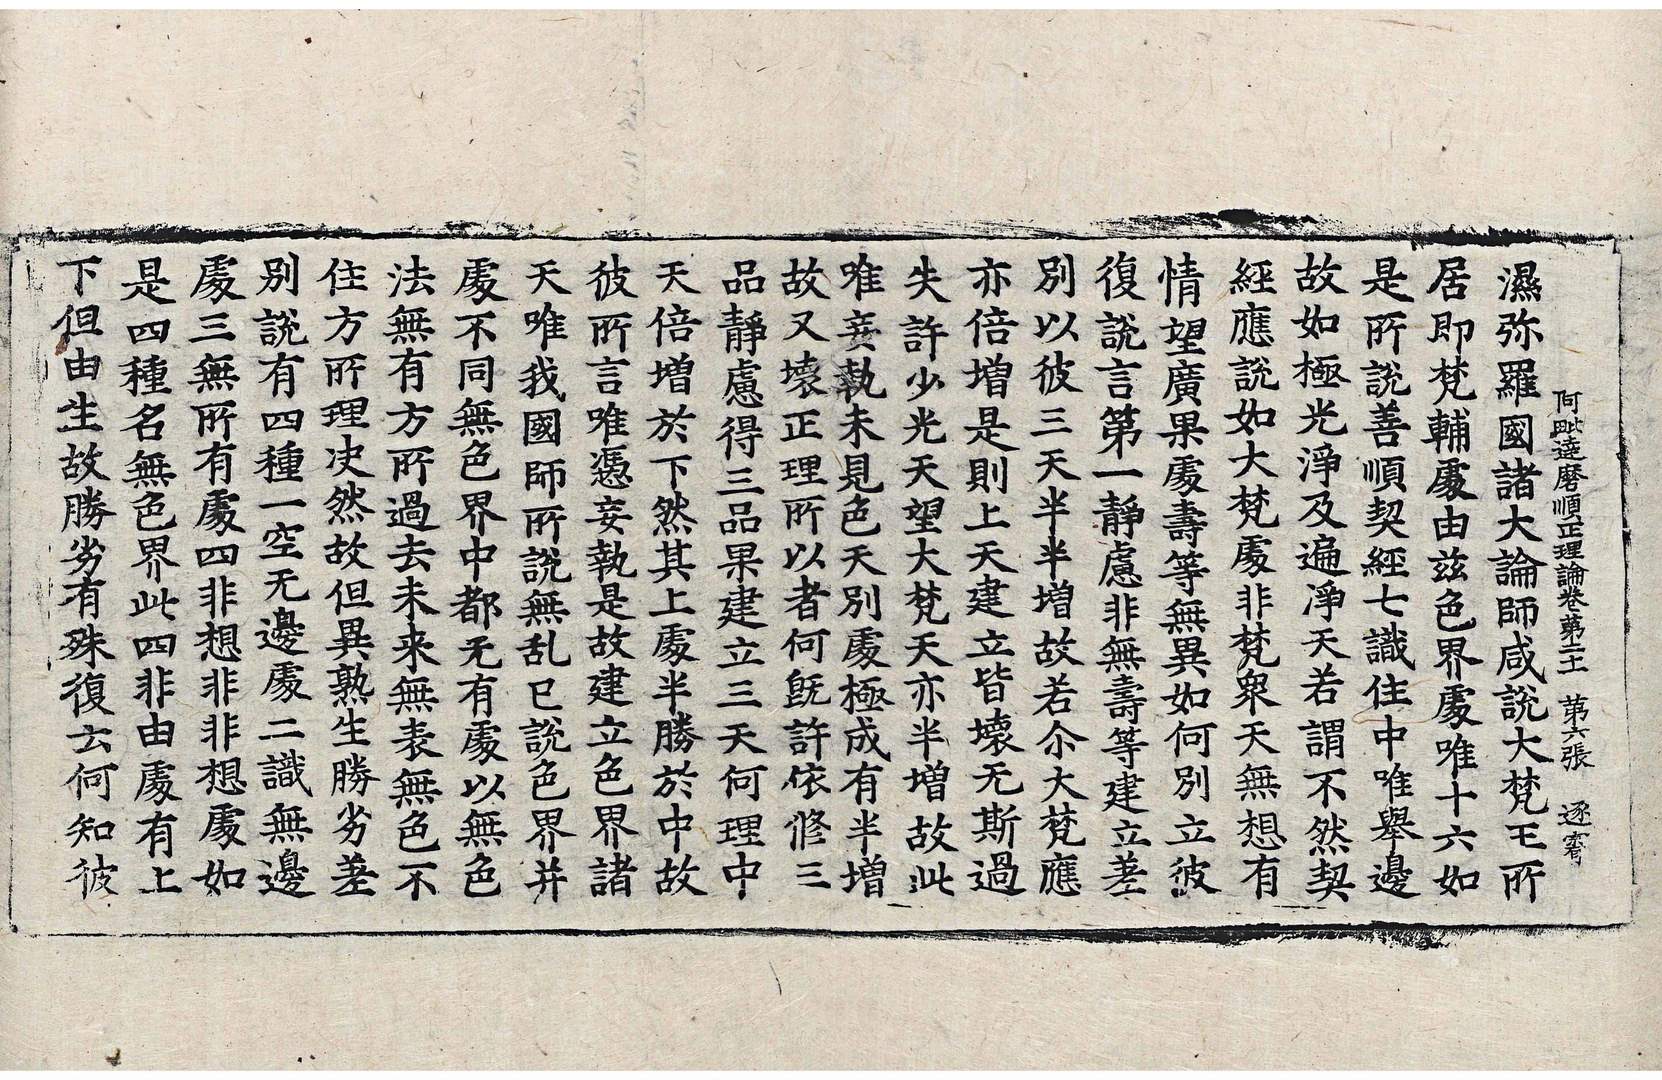 阿毗達磨順正理論卷第二十一　第六張　逐
濕弥羅國諸大論師咸說大梵王所
居即梵輔處由兹色界處唯十六如
是所說善順契經七識住中唯舉邊
故如極光淨及遍淨天若謂不然契
經應說如大梵處非梵眾天無想有
情望廣果處壽等無異如何別立彼
復說言第一靜慮非無壽等建立差
別以彼三天半半增故若尒大梵應
亦倍增是則上天建立皆壞无斯過
失許少光天望大梵天亦半增故此
唯妄執未見色天別處極成有半增
故又壞正理所以者何旣許依修三
品靜慮得三品果建立三天何理中
天倍增於下然其上處半勝於中故
彼所言唯憑妄執是故建立色界諸
天唯我國師所說無乱已說色界并
處不同無色界中都无有處以無色
法無有方所過去未来無表無色不
住方所理決然故但異熟生勝劣差
别說有四種一空无邊處二識無邊
處三無所有處四非想非非想處如
是四種名無色界此四非由處有上
下但由生故勝劣有殊復云何知彼